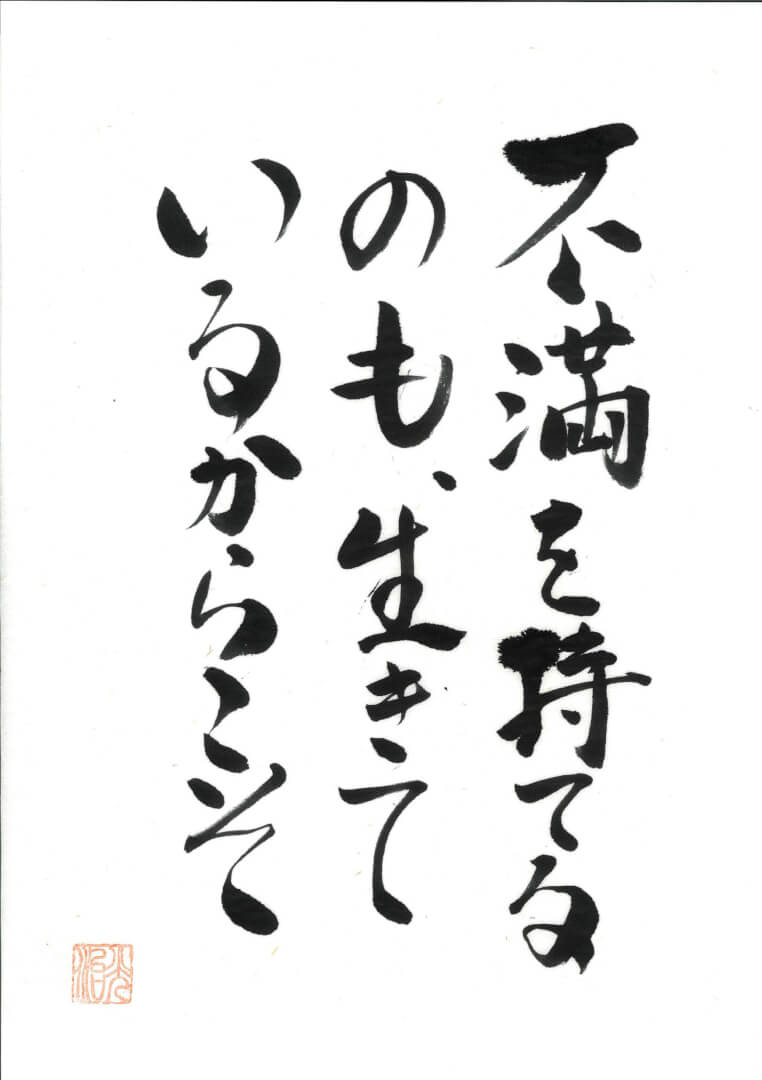 不満を持てる
のも、生きて
いるからこそ